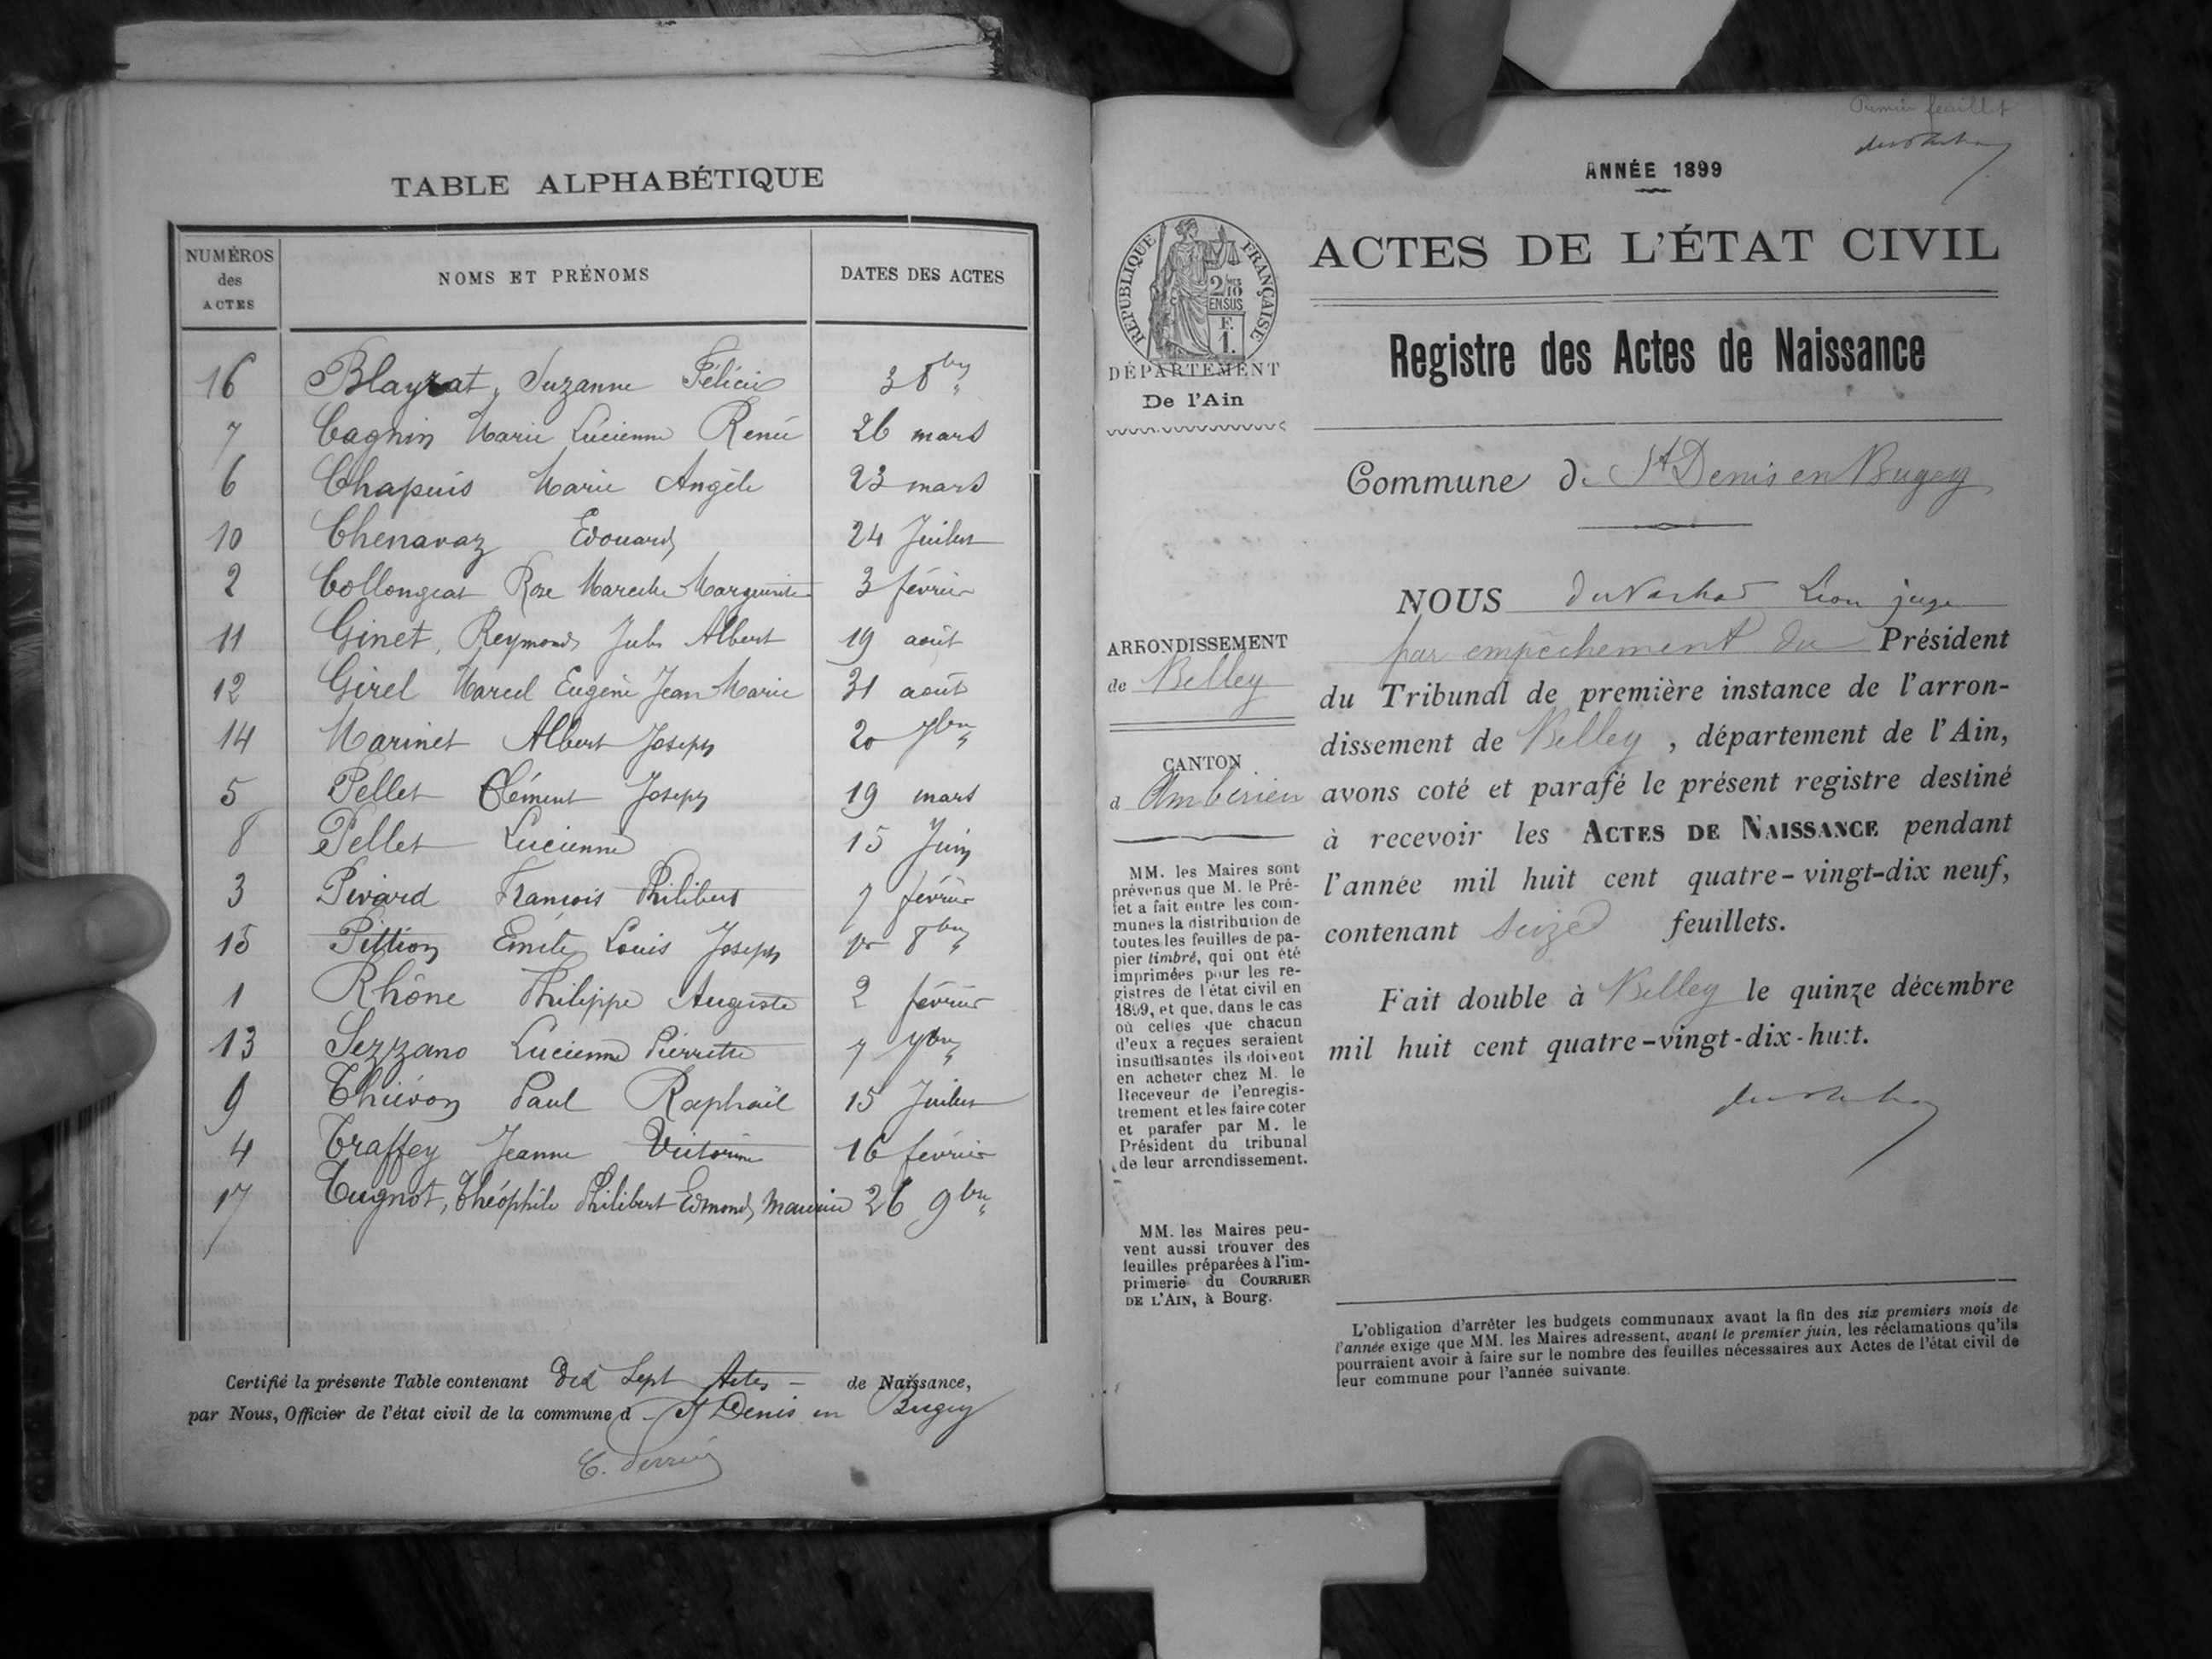 TABLE ALPHABÉTIQUE
NUMÉROS des ACTES NOMS ET PRÉNOMS DATES DES ACTES
16 Blayrat, Suzanne Félicie 3 8bre
7 Cagnin Marie Lucienne Renée 26 mars
6 Chapuis Marie Angèle 23 mars
10 Chenavaz Edouard 24 Juillet
2 Collongeat Rose Marcelle Marguerite 3 février
11 Ginet, Reymond Jules Albert 19 août
12 Girel Marcel Eugène Jean Marie 31 août
14 Marinet Albert Joseph 20 7bre
5 Pellet Clément Joseph 19 mars
8 Pellet Lucienne 15 Juin
3 Pivard François Philibert 7 février
15 Pittion Emile Louis Joseph 1er 8bre
1 Rhône Philippe Auguste 2 février
13 Sezzano Lucienne Pierrette 7 7bre
9 Thiévon Paul Raphaël 15 Juillet
4 Traffey Jeanne Victorine 16 février
17 Tugnot, Théophile Philibert Edmond Maurice 26 9bre
Certifié la présente Table contenant Dix Sept Actes — de Naissance,
par Nous, Officier de l'état civil de la commune d St Denis en Bugey
Premier feuillet
ANNÉE 1899
RÉPUBLIQUE FRANÇAISE
2/10 EN SUS
F. 1.
DÉPARTEMENT
De l'Ain
ACTES DE L'ÉTAT CIVIL
Registre des Actes de Naissance
Commune de St Denis en Bugey
ARRONDISSEMENT
de Belley
CANTON
d Ambérieu
MM. les Maires sont
prévenus que M. le Pré-
fet a fait entre les com-
munes la distribution de
toutes les feuilles de pa-
pier timbré, qui ont été
imprimées pour les re-
gistres de l'état civil en
1899, et que, dans le cas
où celles que chacun
d'eux a reçues seraient
insuffisantes ils doivent
en acheter chez M. le
Receveur de l'enregis-
trement et les faire coter
et parafer par M. le
Président du tribunal
de leur arrondissement.
MM. les Maires peu-
vent aussi trouver des
feuilles préparées à l'im-
primerie du COURRIER
DE L'AIN, à Bourg.
NOUS Léon juge
par empêchement du Président
du Tribunal de première instance de l'arron-
dissement de Belley, département de l'Ain,
avons coté et parafé le présent registre destiné
à recevoir les ACTES DE NAISSANCE pendant
l'année mil huit cent quatre-vingt-dix neuf,
contenant seize feuillets.
Fait double à Belley le quinze décembre
mil huit cent quatre-vingt-dix-huit.
L'obligation d'arrêter les budgets communaux avant la fin des six premiers mois de
l'année exige que MM. les Maires adressent, avant le premier juin, les réclamations qu'ils
pourraient avoir à faire sur le nombre des feuilles nécessaires aux Actes de l'état civil de
leur commune pour l'année suivante.